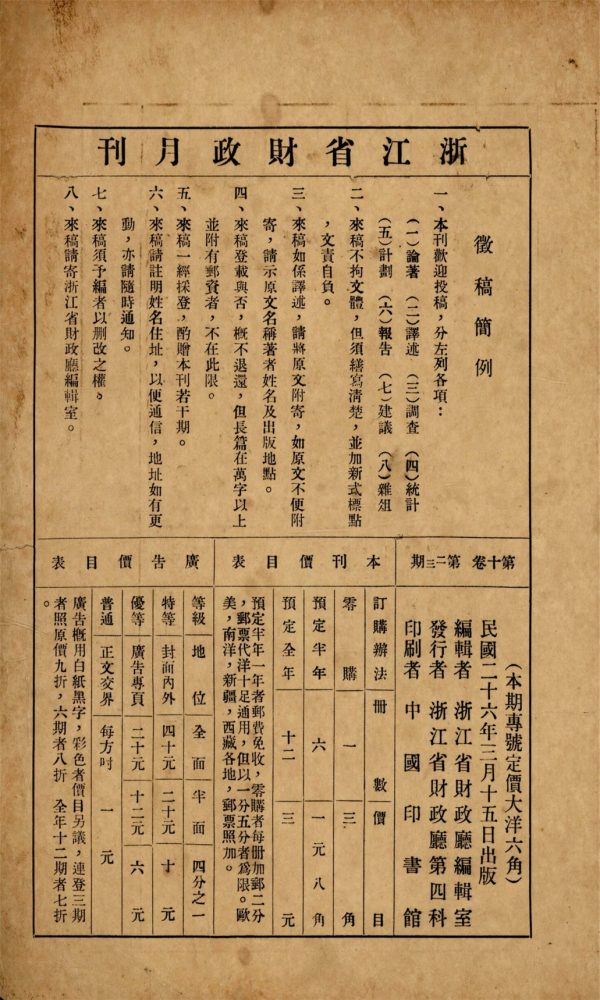 浙江省財政月刊
徵稿簡例
一、本刊歡迎投稿，分左列各項：
（一）論著　（二）譯述　（三）調查　（四）統計
（五）計劃　（六）報告　（七）建議　（八）雜俎
二、來稿不拘文體，但須繕寫清楚，並加新式標點
，文責自負。
三、來稿如係譯述，請將原文附寄，如原文不便附
寄，請示原文名稱著者姓名及出版地點。
四、來稿登載與否，概不退還，但長篇在萬字以上
並附有郵資者，不在此限。
五、來稿一經採登，酌贈本刊若干期。
六、來稿請註明姓名住址，以便通信，地址如有更
動，亦請隨時通知。
七、來稿須予編者以刪改之權。
八、來稿請寄浙江省財政廳編輯室。
第十卷　第二三期
（本期專號定價大洋六角）
民國二十六年三月十五日出版
編輯者　浙江省財政廳編輯室
發行者　浙江省財政廳第四科
印刷者　中國印書館
本刊價目表
訂購辦法　冊數　價目
零購　一　三角
預定半年　六　一元八角
預定全年　十二　三元
預定半年一年者郵費免收，零購者每冊加郵二分
，郵票代洋十足通用，但以一分五分者為限。歐
美，南洋，新疆，西藏各地，郵票照加。
廣告價目表
等級　地位　全面　半面　四分之一
特等　封面內外　四十元　二十元　十元
優等　廣告專頁　二十元　十二元　六元
普通　正文交界　每方吋　一元
廣告概用白紙黑字，彩色者價目另議，連登三期
者照原價九折，六期者八折　全年十二期者七折
。